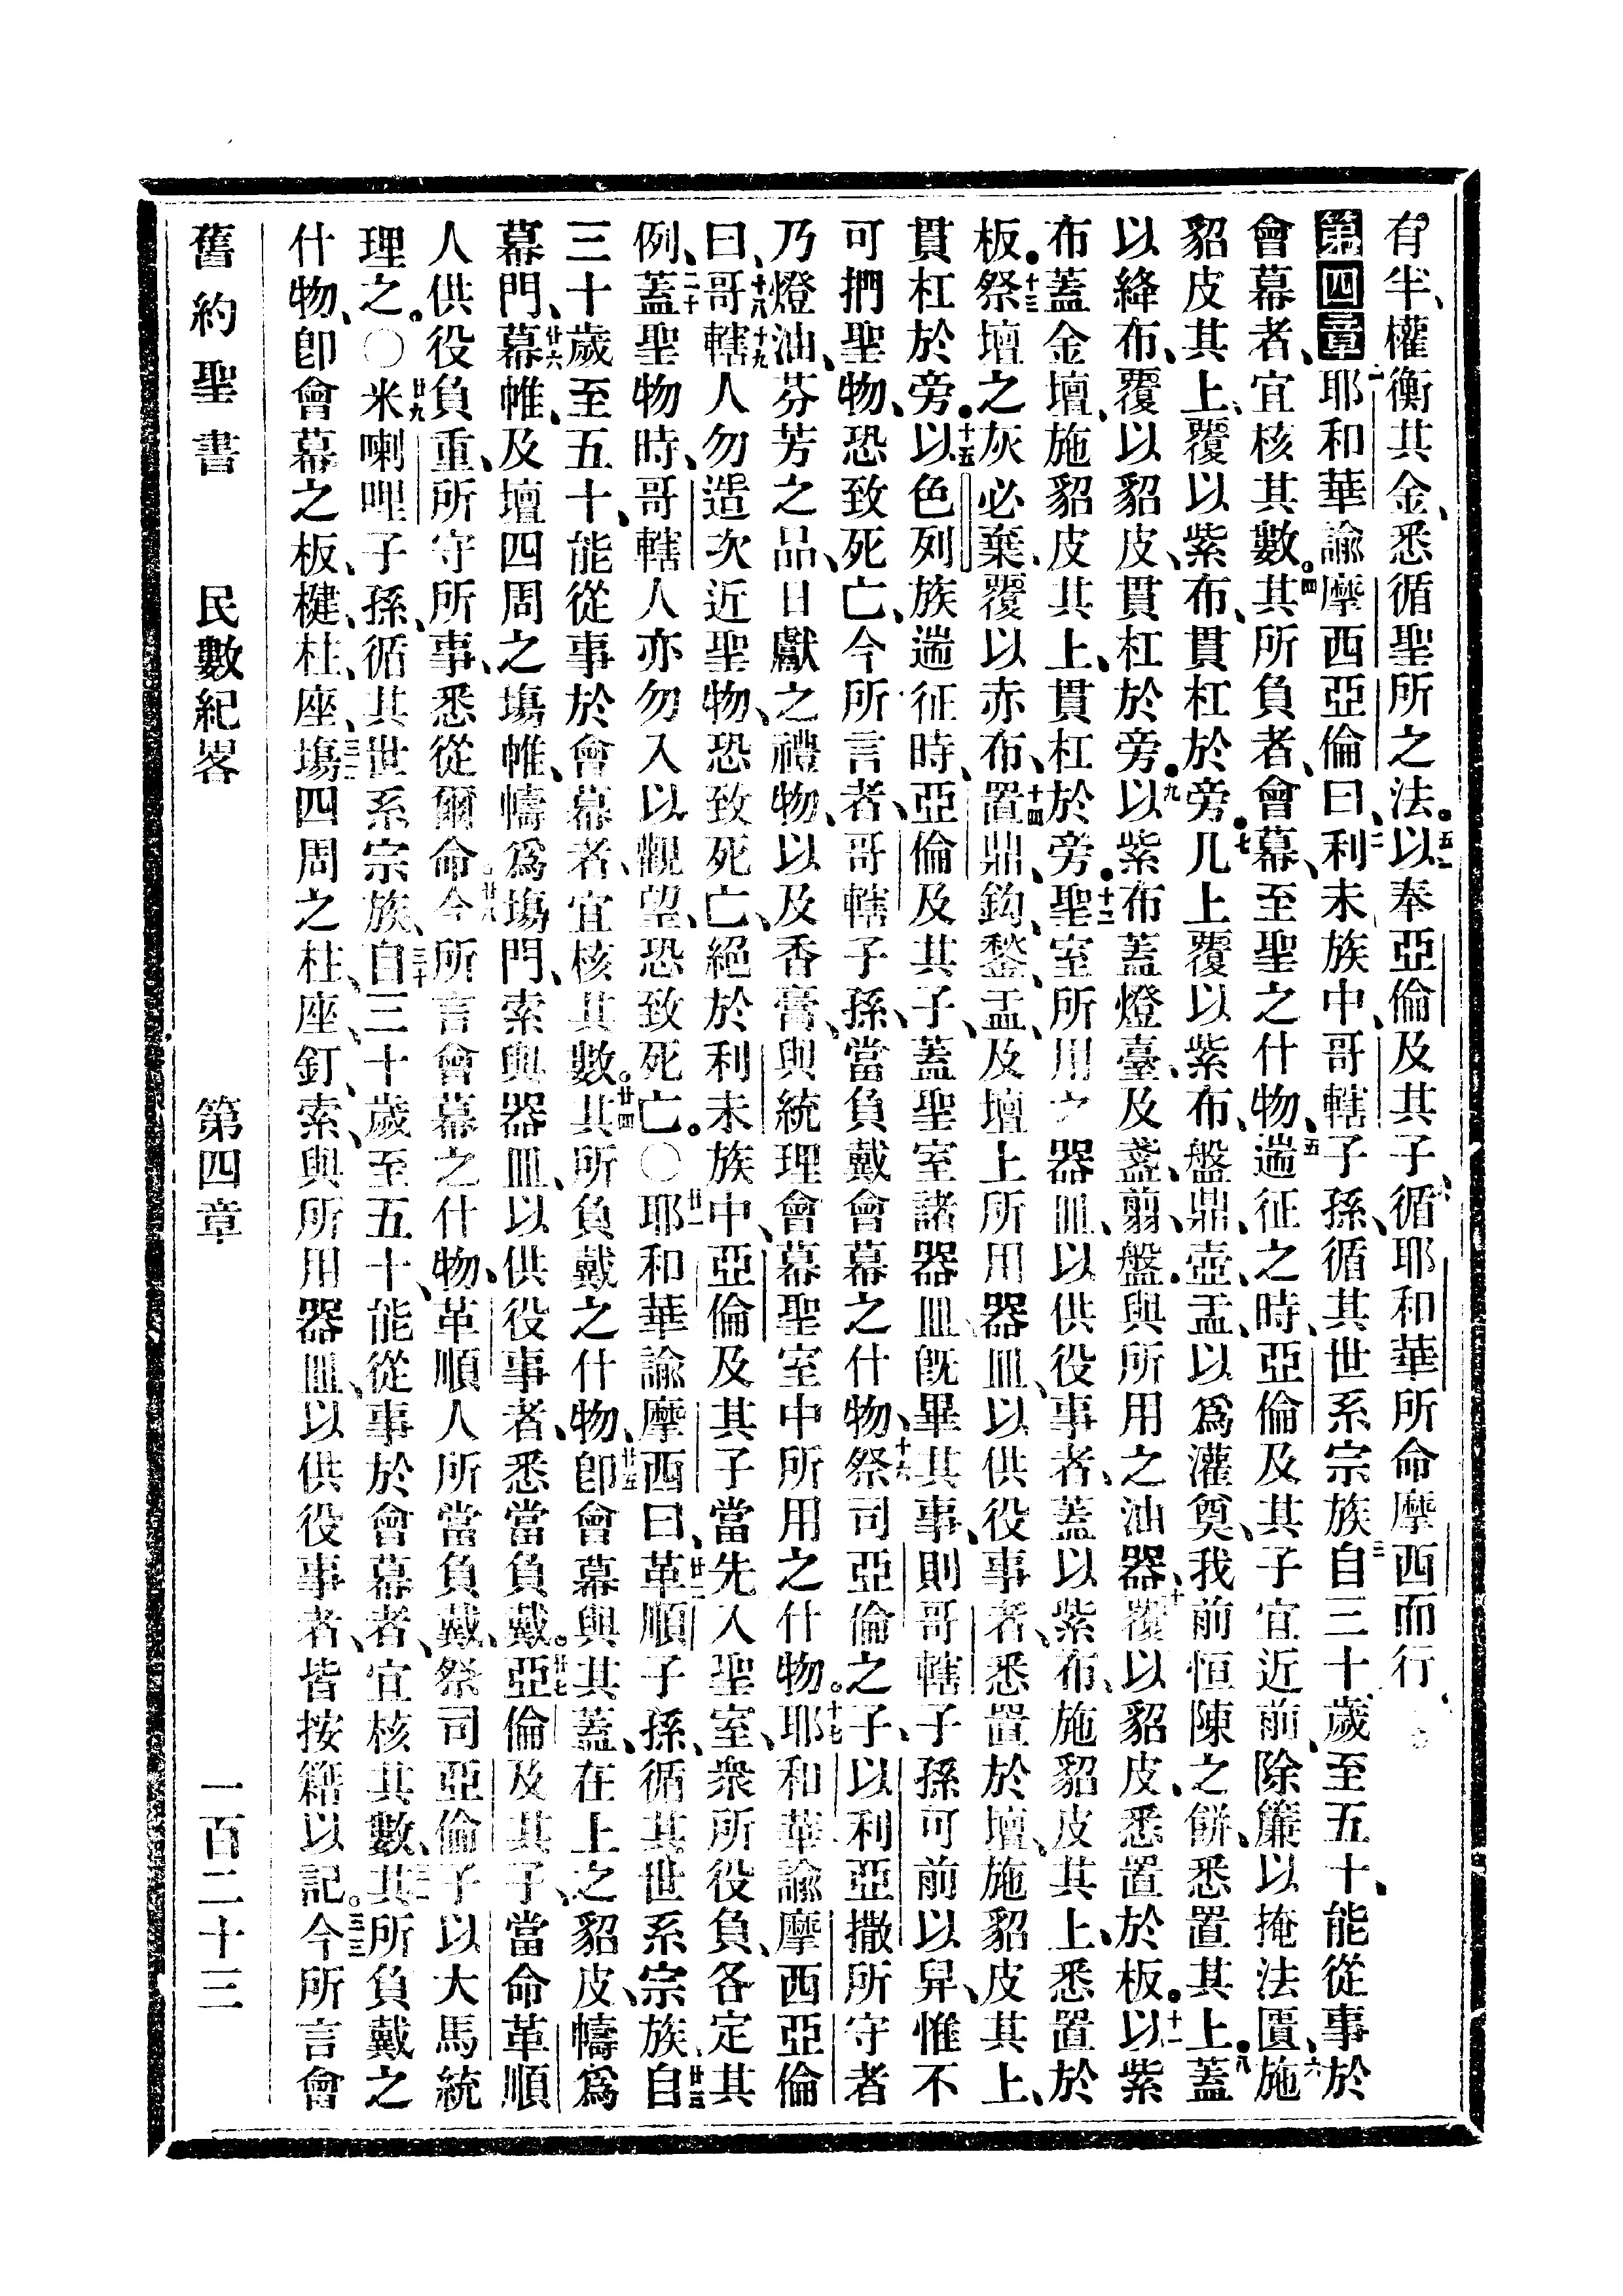 有半、權衡其金、悉循聖所之法。五一以奉亞倫及其子、循耶和華所命摩西而行、
第四章一耶和華諭摩西亞倫曰、二利未族中、哥轄子孫、循其世系宗族三自三十歲至五十、能從事於
會幕者、宜核其數。四其所負者、會幕、至聖之什物、五遄征之時、亞倫及其子宜近前、除簾以掩法匱、六施
貂皮其上、覆以紫布、貫杠於旁。七几上覆以紫布、盤、鼎、壺、盂、以爲灌奠、我前恒陳之餅、悉置其上。八蓋
以絳布、覆以貂皮、貫杠於旁。九以紫布蓋燈臺、及盞、翦、盤、與所用之油器、十覆以貂皮、悉置於板。十一以紫
布蓋金壇、施貂皮其上、貫杠於旁。十二聖室所用之器皿、以供役事者、蓋以紫布、施貂皮其上、悉置於
板。十三祭壇之灰必棄、覆以赤布、十四置鼎、鈎、鍫、盂、及壇上所用器皿、以供役事者、悉置於壇、施貂皮其上、
貫杠於旁。十五以色列族遄征時、亞倫及其子、蓋聖室諸器皿、旣畢其事、則哥轄子孫可前以舁、惟不
可捫聖物、恐致死亡、今所言者、哥轄子孫、當負戴會幕之什物、十六祭司亞倫之子、以利亞撒所守者
乃燈油、芬芳之品、日獻之禮物、以及香膏、與統理會幕聖室中所用之什物。十七耶和華諭摩西亞倫
曰、十八哥十九轄人勿造次近聖物、恐致死亡、絕於利未族中、亞倫及其子當先入聖室、衆所役負、各定其
例、二十蓋聖物時、哥轄人亦勿入以觀望、恐致死亡。〇廿一耶和華諭摩西曰、廿二革順子孫、循其世系宗族、廿三自
三十歲至五十、能從事於會幕者、宜核其數。廿四其所負戴之什物、廿五卽會幕與其蓋、在上之貂皮、幬爲
幕門、廿六幕帷、及壇四周之塲帷、幬爲塲門、索與器皿、以供役事者、悉當負戴。廿七亞倫及其子、當命革順
人供役負重、所守所事、悉從爾命、廿八今所言會幕之什物、革順人所當負戴、祭司亞倫子以大馬統
理之。〇廿九米喇哩子孫、循其世系宗族、三十自三十歲至五十、能從事於會幕者、宜核其數、三一其所負戴之
什物、卽會幕之板、楗、柱、座、三二塲四周之柱、座、釘、索、與所用器皿、以供役事者、皆按籍以記。三三今所言會
舊約聖書　民數紀畧　第四章　一百二十三